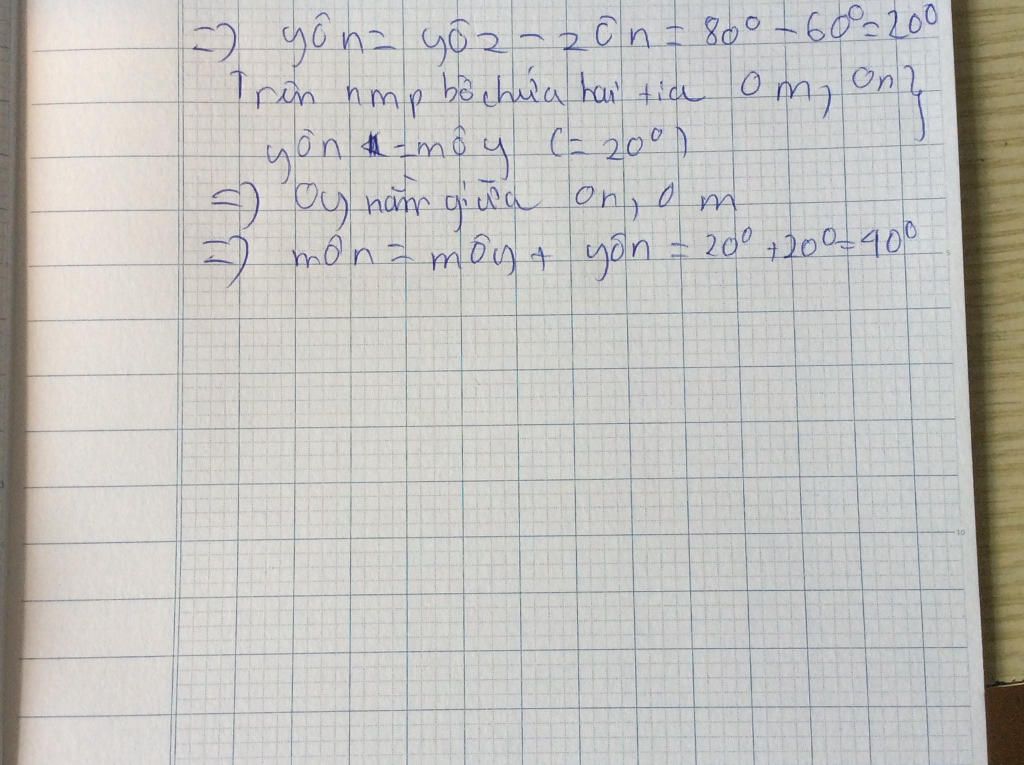 => yÔn = yÔz - zÔn = 80⁰ - 60⁰ = 20⁰
Trên nmp bờ chứa hai tia Om, On }
yÔn = mÔy (= 20⁰)
=> Oy nằm giữa On, Om
=> mÔn = mÔy + yÔn = 20⁰ + 20⁰ = 40⁰
10